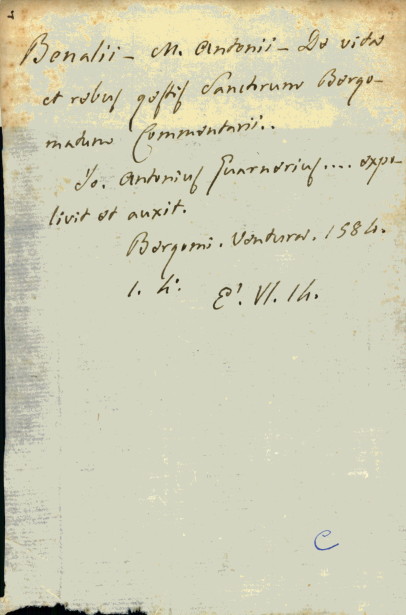 Benalii - M. Antonii - De vita
et rebus gestis Sanctorum Bergo-
matum Commentarii..
Io. Antonius Guarnerius.... expo-
livit et auxit.
Bergomi. Ventura. 1584.
1. 4°.
E'. VI. 14.
C